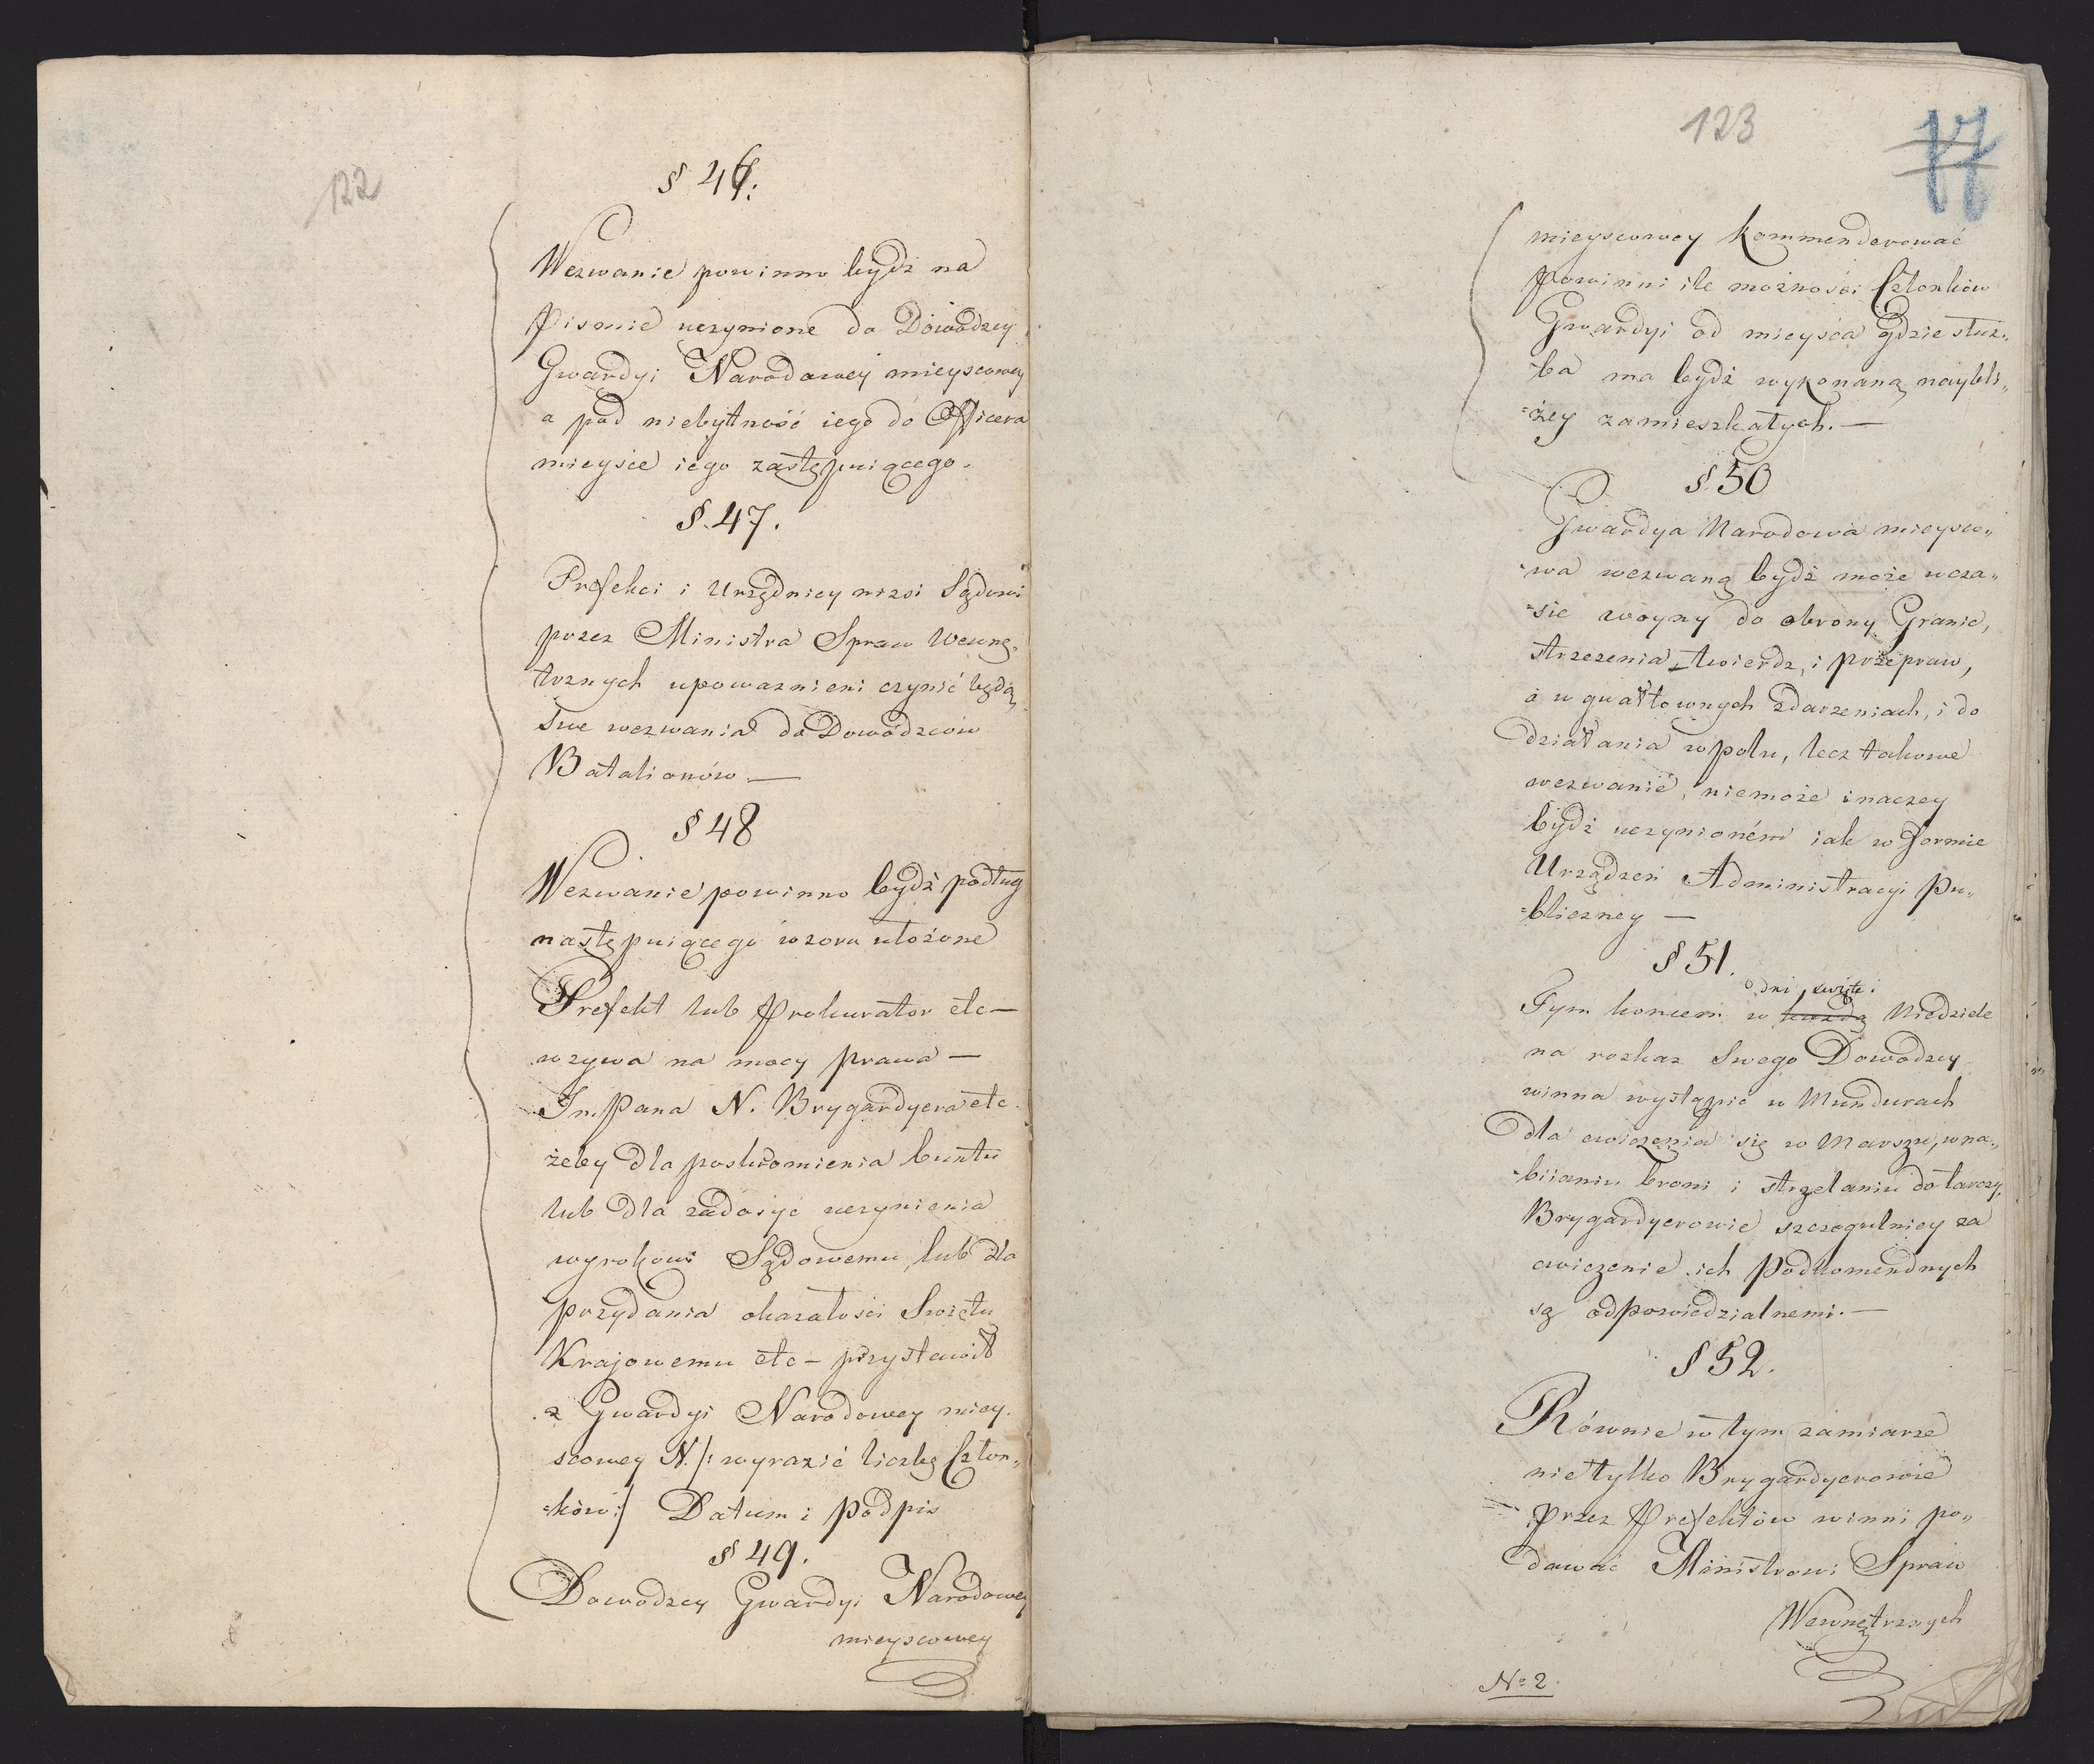 122
§ 46:
Wezwanie powinno bydź na
Pismie uczynione do Dowodzcy
Gwardyi Narodowey mieyscowey
a pod niebytność iego do Officera
mieysce iego zastępuiącego.
§. 47.
Prefekci i Urzędnicy nizsi Sądowi
przez Ministra Spraw Wewnę„
trznych upowaznieni czynić będą
Swe wezwania do Dowodzców
Batalionów —
§ 48
Wezwanie powinno bydź podług
następuiącego wzoru ułożone
Prefekt lub Prokurator etc —
wzywa na mocy prawa —
Im. Pana N. Brygardyera etc.
żeby dla poskromienia buntu
lub dla zadosyć uczynienia
wyrokowi Sądowemu, lub dla
przydania okazałości Swiętu
Krajowemu etc — przystawił
z Gwardyi Narodowey miey„
scowey N. /: wyrazić liczbę Człon„
=ków :/ Datum i Podpis
§ 49.
Dowodzcy Gwardyi Narodowey
mieyscowey
123
17
mieyscowey kommenderować
powinni ile możności Członków
Gwardyi od mieysca gdzie służ„
=ba ma bydź wykonaną naybli„
=żey zamieszkałych. —
§ 50
Gwardya Narodowa mieysco„
=wa wezwaną bydź może wcza„
=sie woyny do obrony Granic,
strzeżenia twierdz, i przepraw,
a w gwałtownych zdarzeniach, i do
działania w polu, lecz takowe
wezwanie, niemoże inaczey
bydź uczynioném iak w formie
Urządzeń Administracyi Pu„
=bliczney —
§ 51.
dni swięte i
Tym koncem w każdą Niedziele
na rozkaz Swego Dowodzcy
winna wystąpić w Mundurach
dla cwiczenia się w Marszu, w na„
=biianiu broni i strzelaniu do tarczy,
Brygardyerowie szczegulniey za
cwiczenie ich Podkomendnych
są odpowiedzialnemi. —
§ 52.
Równie w tym zamiarze
nietylko Brygardyerowie
przez Prefektów winni po„
dawać Ministrowi Spraw
Wewnętrznych
No 2.